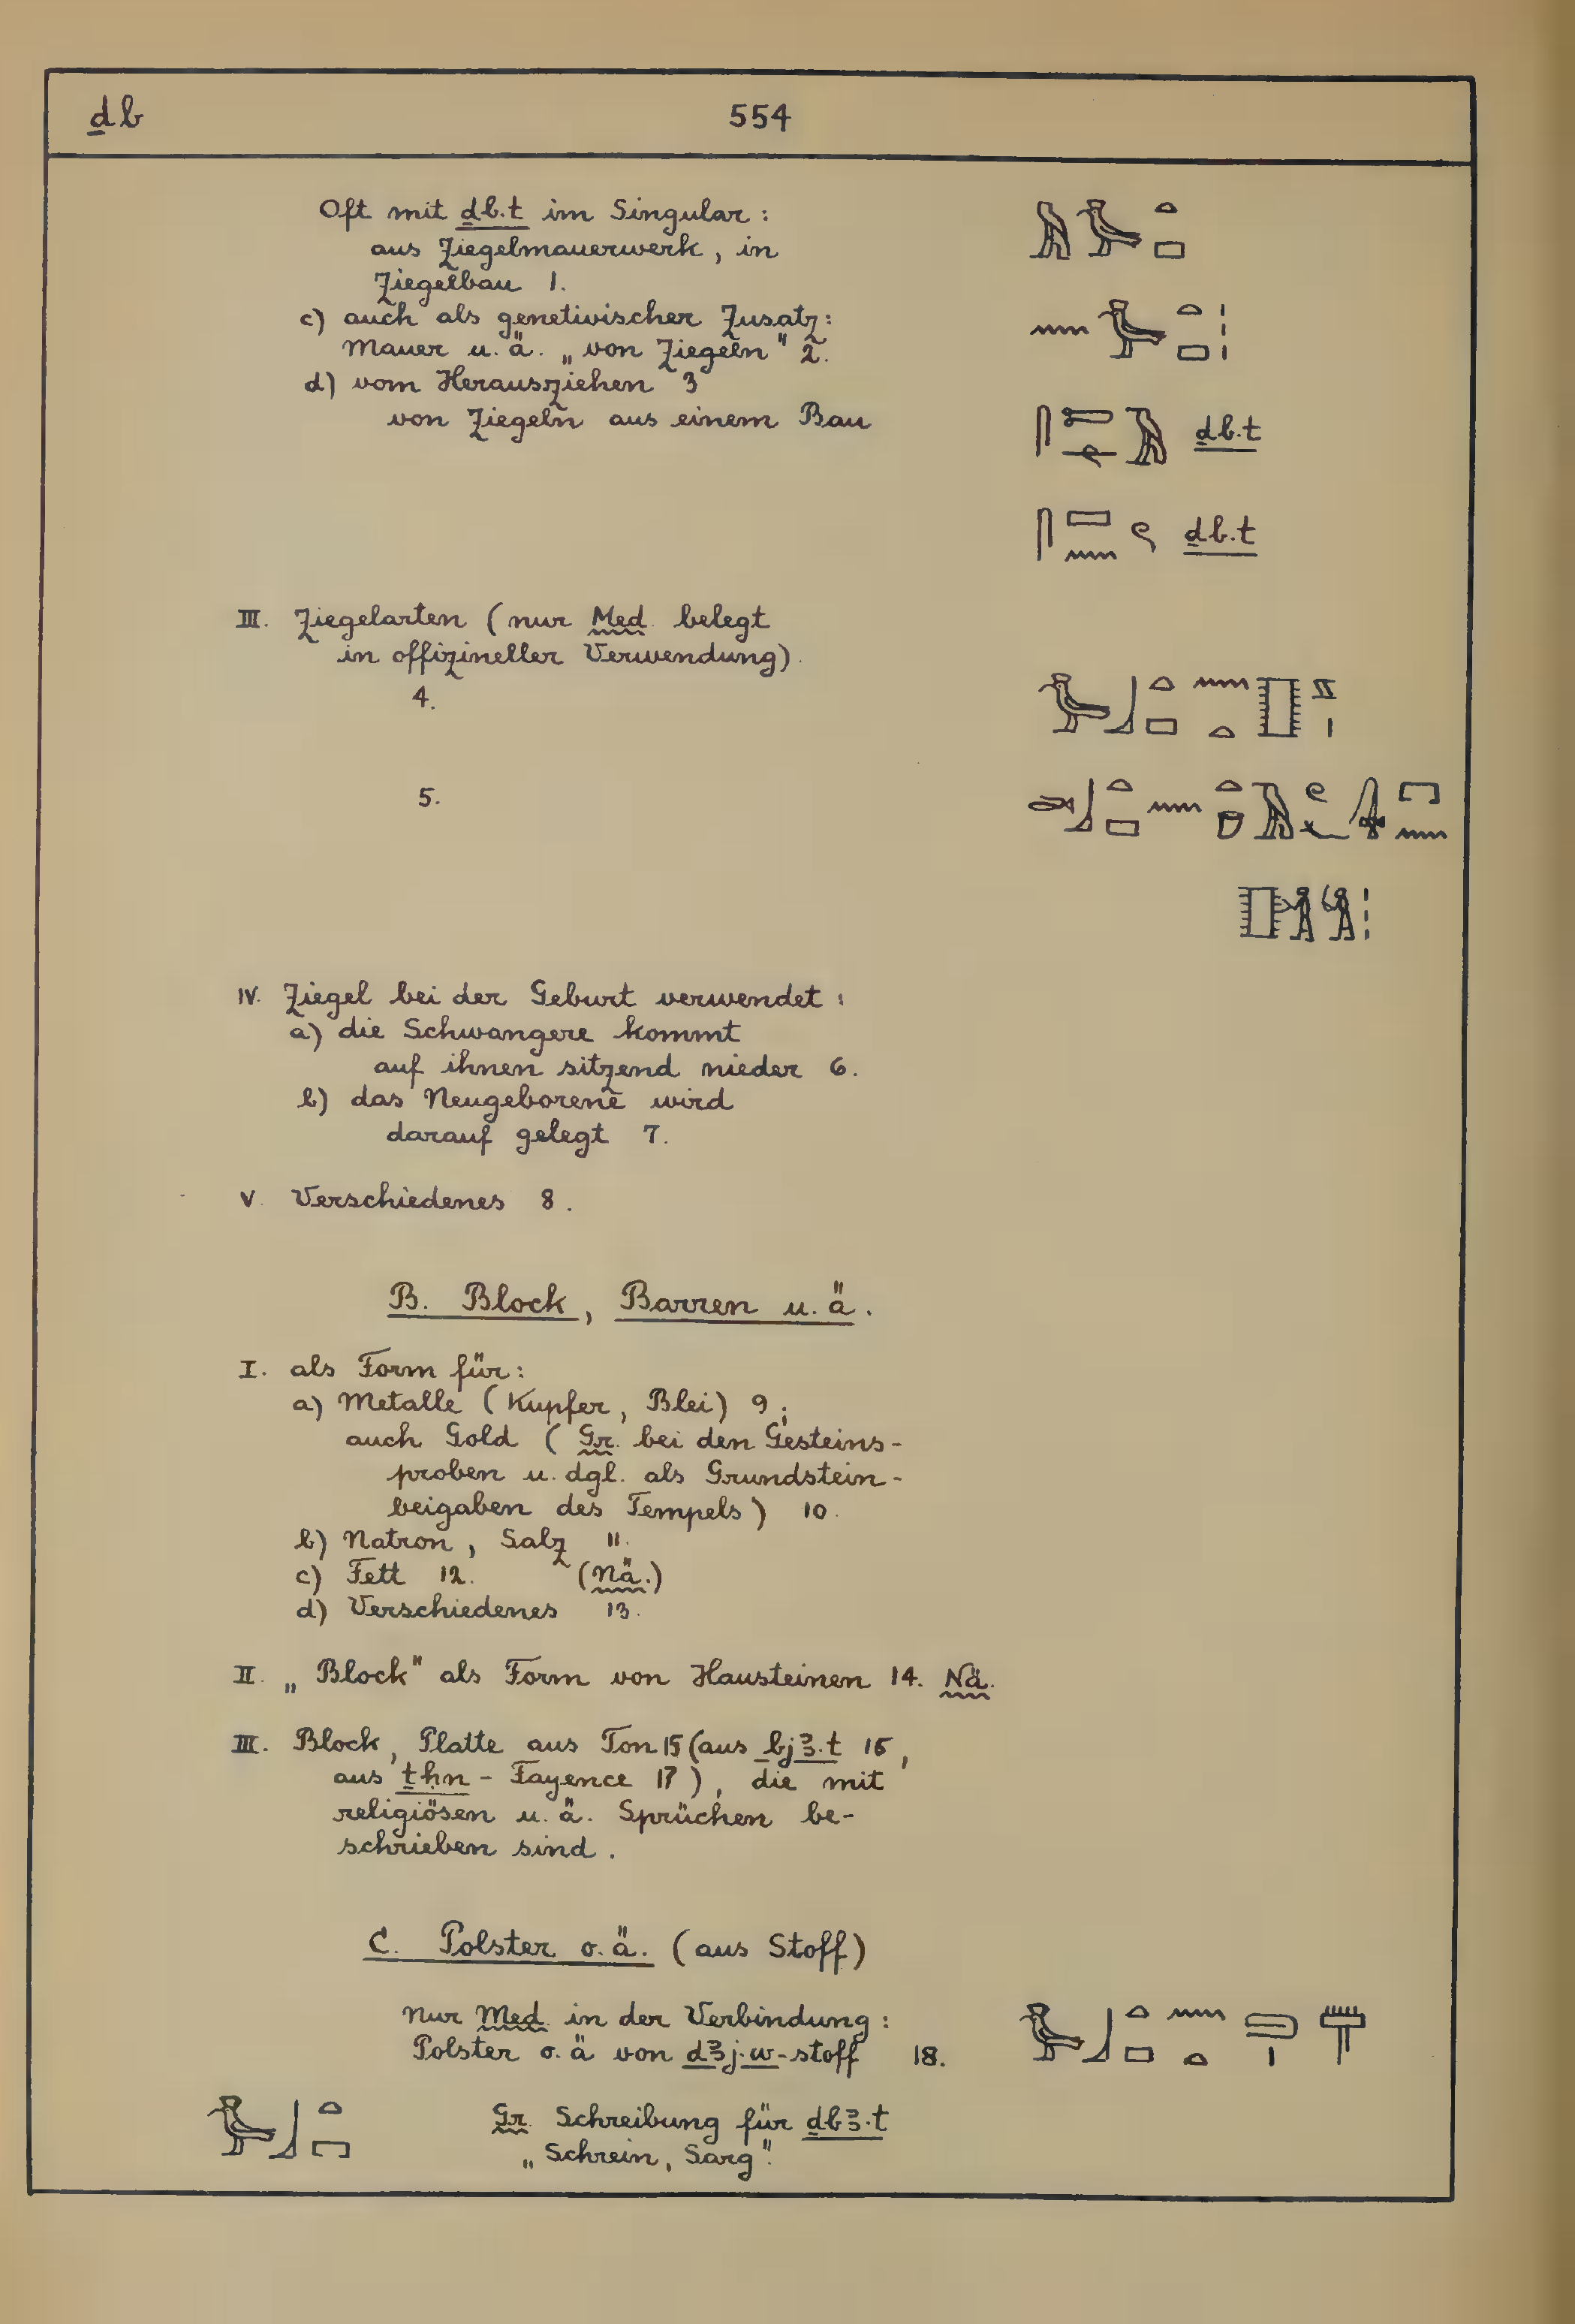 ḏb 554
Oft mit ḏb.t im Singular:
aus Ziegelmauerwerk, in
Ziegelbau 1.
c) auch als genetivischer Zusatz:
Mauer u. ä. „von Ziegeln" 2.
d) vom Herausziehen 3
von Ziegeln aus einem Bau
ḏb.t
ḏb.t
III. Ziegelarten (nur Med. belegt
in offizineller Verwendung).
4.
5.
IV. Ziegel bei der Geburt verwendet:
a) die Schwangere kommt
auf ihnen sitzend nieder 6.
b) das Neugeborene wird
darauf gelegt 7.
V. Verschiedenes 8.
B. Block, Barren u. ä.
I. als Form für:
a) Metalle (Kupfer, Blei) 9;
auch Gold (Gr. bei den Gesteins-
proben u. dgl. als Grundstein-
beigaben des Tempels) 10.
b) Natron, Salz 11.
c) Fett 12. (Nä.)
d) Verschiedenes 13.
II. „Block" als Form von Hausteinen 14. Nä.
III. Block, Platte aus Ton 15 (aus bjꜣ.t 16,
aus ṯḥn - Fayence 17), die mit
religiösen u. ä. Sprüchen be-
schrieben sind.
C. Polster o. ä. (aus Stoff)
Nur Med. in der Verbindung:
Polster o. ä von dꜣj.w-stoff 18.
Gr. Schreibung für ḏbꜣ.t
„Schrein, Sarg".